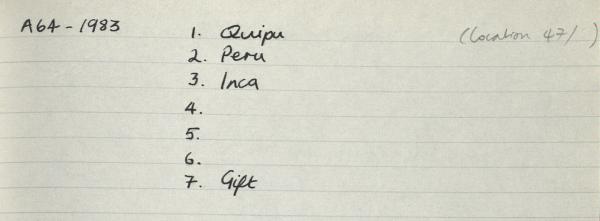 A64-1983
1. Quipu (Location 47/ )
2. Peru
3. Inca
4.
5.
6.
7. Gift